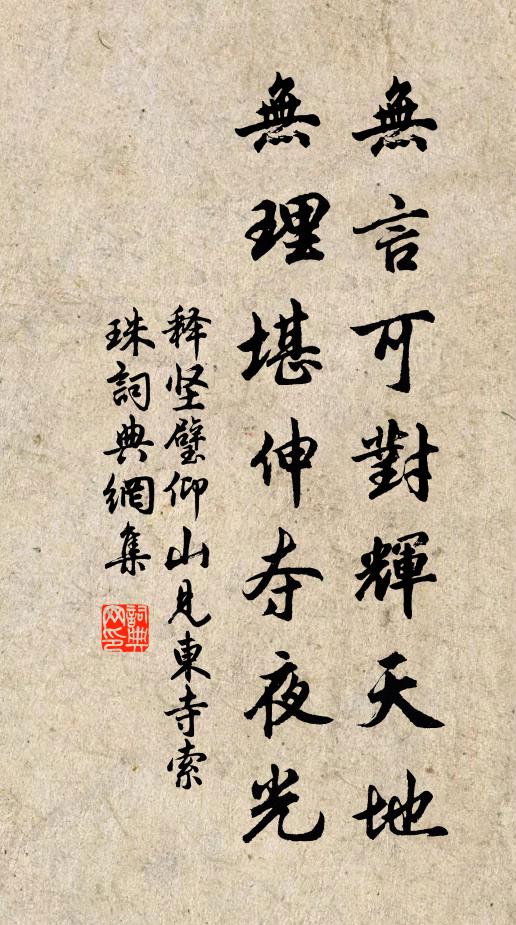 無言可對輝天地
無理堪伸夺夜光
释坚璧仰山見東寺索
珠詞典網集
詞典
网印